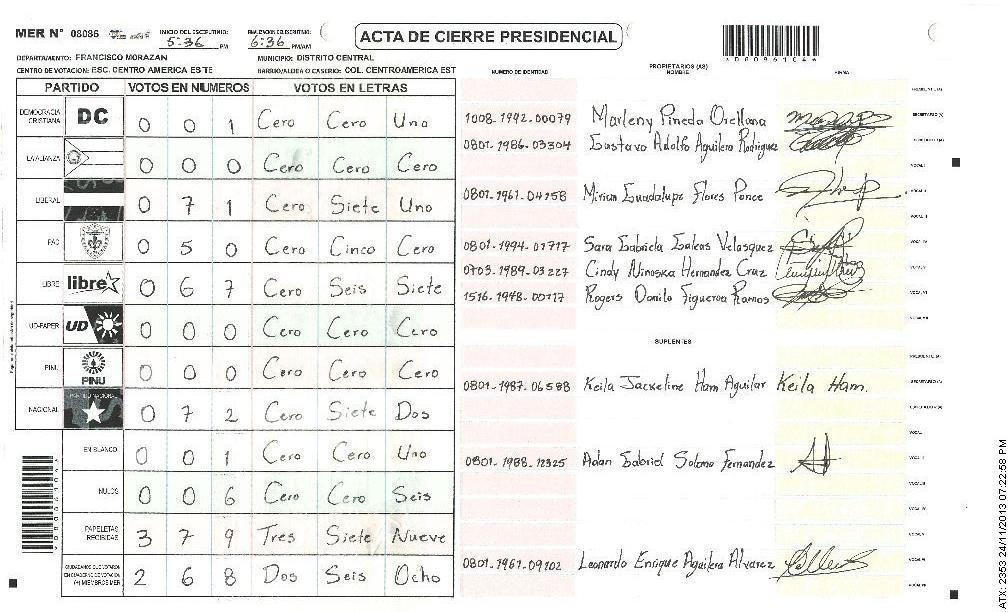 MER N° 08086
INICIO DEL ESCRUTINIO: 5:36 PM
FINALIZACION DEL ESCRUTINIO: 6:36 PM/AM
ACTA DE CIERRE PRESIDENCIAL
DEPARTAMENTO: FRANCISCO MORAZAN
MUNICIPIO: DISTRITO CENTRAL
CENTRO DE VOTACION: ESC. CENTRO AMERICA ESTE
BARRIO/ALDEA O CASERIO: COL. CENTROAMERICA EST
PARTIDO VOTOS EN NUMEROS VOTOS EN LETRAS
DEMOCRACIA CRISTIANA DC 0 0 1 Cero Cero Uno
LA ALIANZA 0 0 0 Cero Cero Cero
LIBERAL 0 7 1 Cero Siete Uno
PAC 0 5 0 Cero Cinco Cero
LIBRE libre 0 6 7 Cero Seis Siete
UD-FAPER UD 0 0 0 Cero Cero Cero
PINU PINU 0 0 0 Cero Cero Cero
NACIONAL PARTIDO NACIONAL 0 7 2 Cero Siete Dos
EN BLANCO 0 0 1 Cero Cero Uno
NULOS 0 0 6 Cero Cero Seis
PAPELETAS RECIBIDAS 3 7 9 Tres Siete Nueve
CIUDADANOS QUE VOTARON EN CUADERNO DE VOTACION (+) MIEMBROS MER 2 6 8 Dos Seis Ocho
NUMERO DE IDENTIDAD PROPIETARIOS (AS) NOMBRE FIRMA
PRESIDENTE (A)
1008-1992-00079 Marleny Pineda Orellana SECRETARIO (A)
0801-1986-03304 Gustavo Adolfo Aguilera Rodriguez
VOCAL I
0801-1961-04158 Mirian Guadalupe Flores Ponce VOCAL II
VOCAL III
0801-1994-01717 Sara Gabriela Galeas Velasquez VOCAL IV
0703-1989-03227 Cindy Ninoska Hernandez Cruz VOCAL V
1516-1948-00117 Rogers Donilo Figueroa Ramos VOCAL VI
VOCAL VII
SUPLENTES
PRESIDENTE (A)
0801-1987-06588 Keila Jackeline Ham Aguilar Keila Ham. SECRETARIO (A)
ESCRUTADOR (A)
VOCAL I
0801-1988-12325 Adan Gabriel Solorno Fernandez VOCAL II
VOCAL III
VOCAL IV
VOCAL V
0801-1961-09102 Leonardo Enrique Aguilera Alvarez VOCAL VI
VOCAL VII
ATX: 2353 24/11/2013 07:22:58 PM